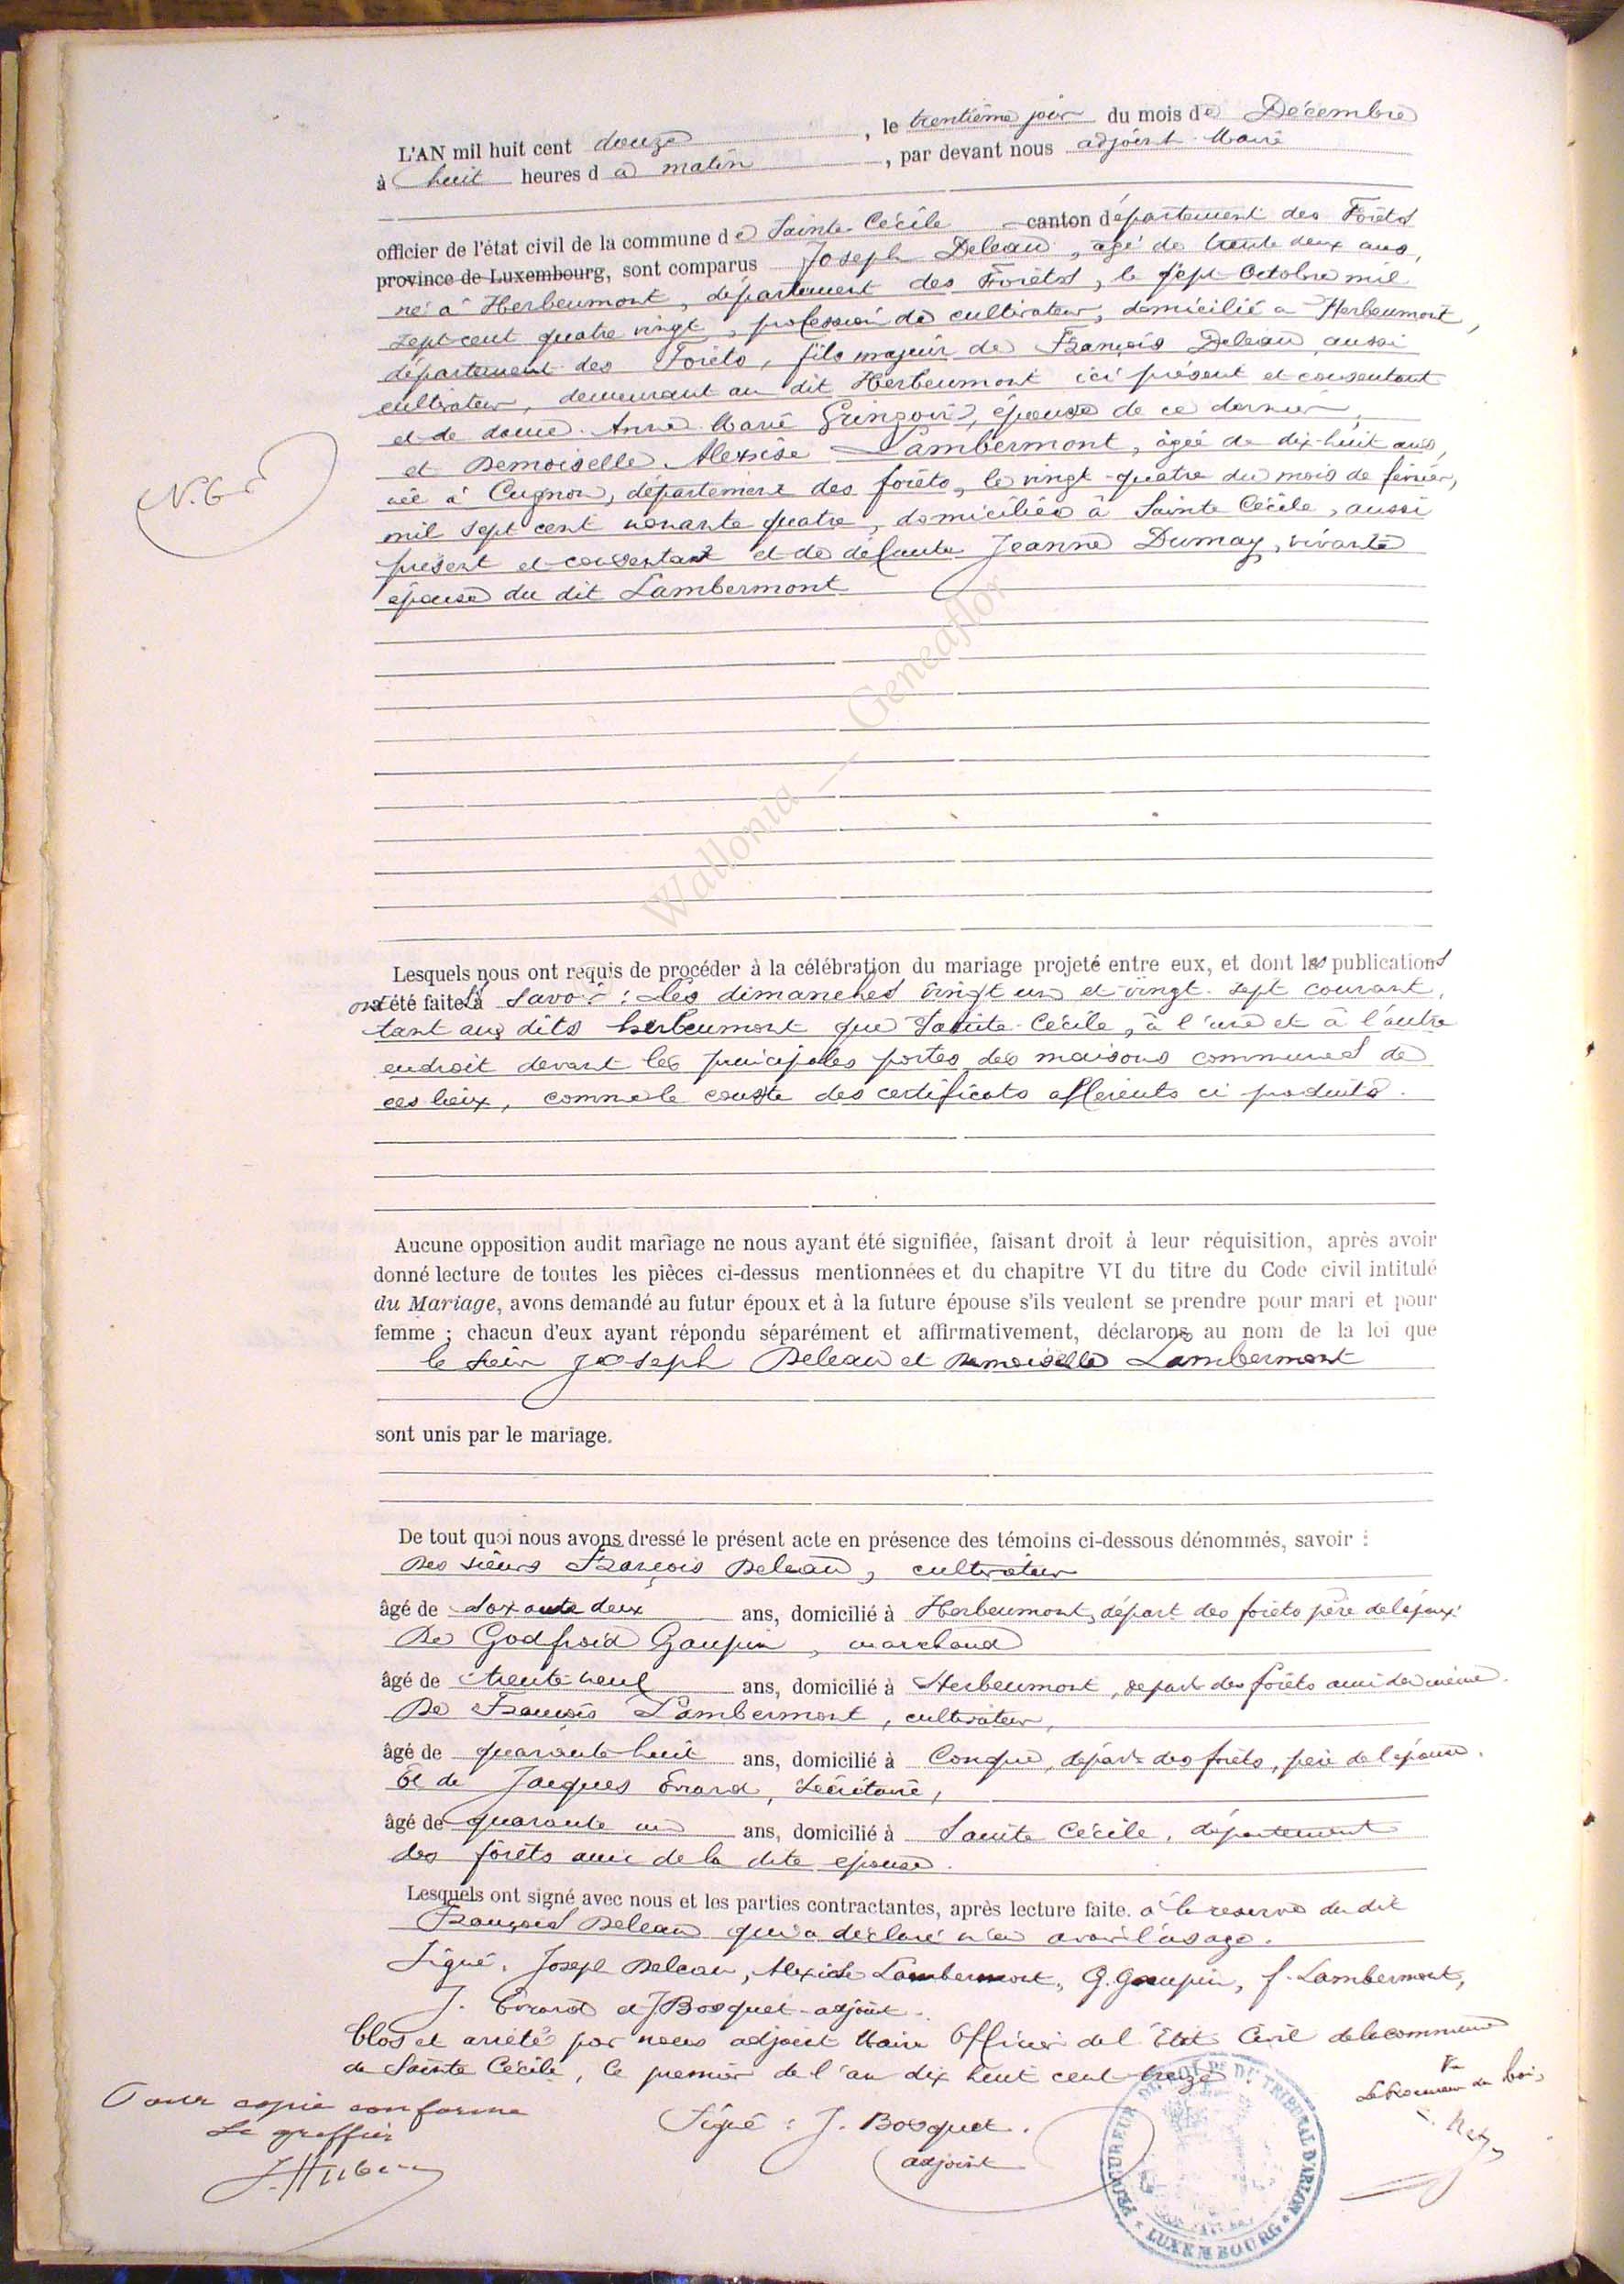 L'AN mil huit cent douze, le trentième jour du mois de Décembre
à huit heures d u matin, par devant nous adjoint Maire
officier de l'état civil de la commune de Sainte-Cécile canton département des Forêts
province de Luxembourg, sont comparus Joseph Deleau, âgé de trente deux ans,
né à Herbeumont, département des Forêts, le sept Octobre mil
sept cent quatre vingt, profession de cultivateur, domicilié à Herbeumont,
département des Forêts, fils majeur de François Deleau aussi
cultivateur, demeurant au dit Herbeumont ici présent et consentant
et de dame Anne Marie Gringoire, épouse de ce dernier,
et Demoiselle Alexise Lambermont, âgée de dix-huit ans,
née à Cugnon, département des forêts, le vingt-quatre du mois de février,
N. 6
mil sept cent nonante quatre, domiciliée à Sainte Cécile, aussi
présent et consentant et de défunte Jeanne Dumay, vivante
épouse du dit Lambermont
© Wallonia — Geneaflor
Lesquels nous ont requis de procéder à la célébration du mariage projeté entre eux, et dont les publications
ont été faites à Savoir : les dimanches vingt un et vingt-sept courant,
tant aux dits herbeumont que Sainte-Cécile, à l'une et à l'autre
endroit devant les principales portes des maisons communes de
ces lieux, comme le conste des certificats afférents ci produits.
Aucune opposition audit mariage ne nous ayant été signifiée, faisant droit à leur réquisition, après avoir
donné lecture de toutes les pièces ci-dessus mentionnées et du chapitre VI du titre du Code civil intitulé
du Mariage, avons demandé au futur époux et à la future épouse s'ils veulent se prendre pour mari et pour
femme ; chacun d'eux ayant répondu séparément et affirmativement, déclarons au nom de la loi que
le sieur Joseph Deleau et Demoiselle Lambermont
sont unis par le mariage.
De tout quoi nous avons dressé le présent acte en présence des témoins ci-dessous dénommés, savoir :
Des sieurs François Deleau, cultivateur
âgé de Soxante deux ans, domicilié à Herbeumont, départ des forêts père de l'époux
De Godfroid Goupin, marchand
âgé de trente neuf ans, domicilié à Herbeumont, depart des forêts ami du même.
De François Lambermont, cultivateur,
âgé de quarante huit ans, domicilié à Conque, départ des forêts, père de l'épouse.
Et de Jacques Evrard, Secrétaire,
âgé de quarante un ans, domicilié à Sainte Cécile, département
des forêts ami de la dite épouse.
Lesquels ont signé avec nous et les parties contractantes, après lecture faite. à la reserve du dit
François Deleau qui a déclaré n'en avoir l'usage.
Signé, Joseph Deleau, Alexise Lambermont, G. Goupin, f. Lambermont,
J. Evrard et J Bosquet-adjoint.
Clos et arrêté par nous adjoint Maire Officier de l'Etat Civil de la commune
de Sainte Cécile, le premier de l'an dix huit cent treize
Pour copie conforme
Le greffier
Signé : J. Bosquet.
adjoint
Vu
Le Procureur du Roi,
PROCUREUR DU ROI PR. DU TRIBUNAL D'ARLON
LUXEMBOURG